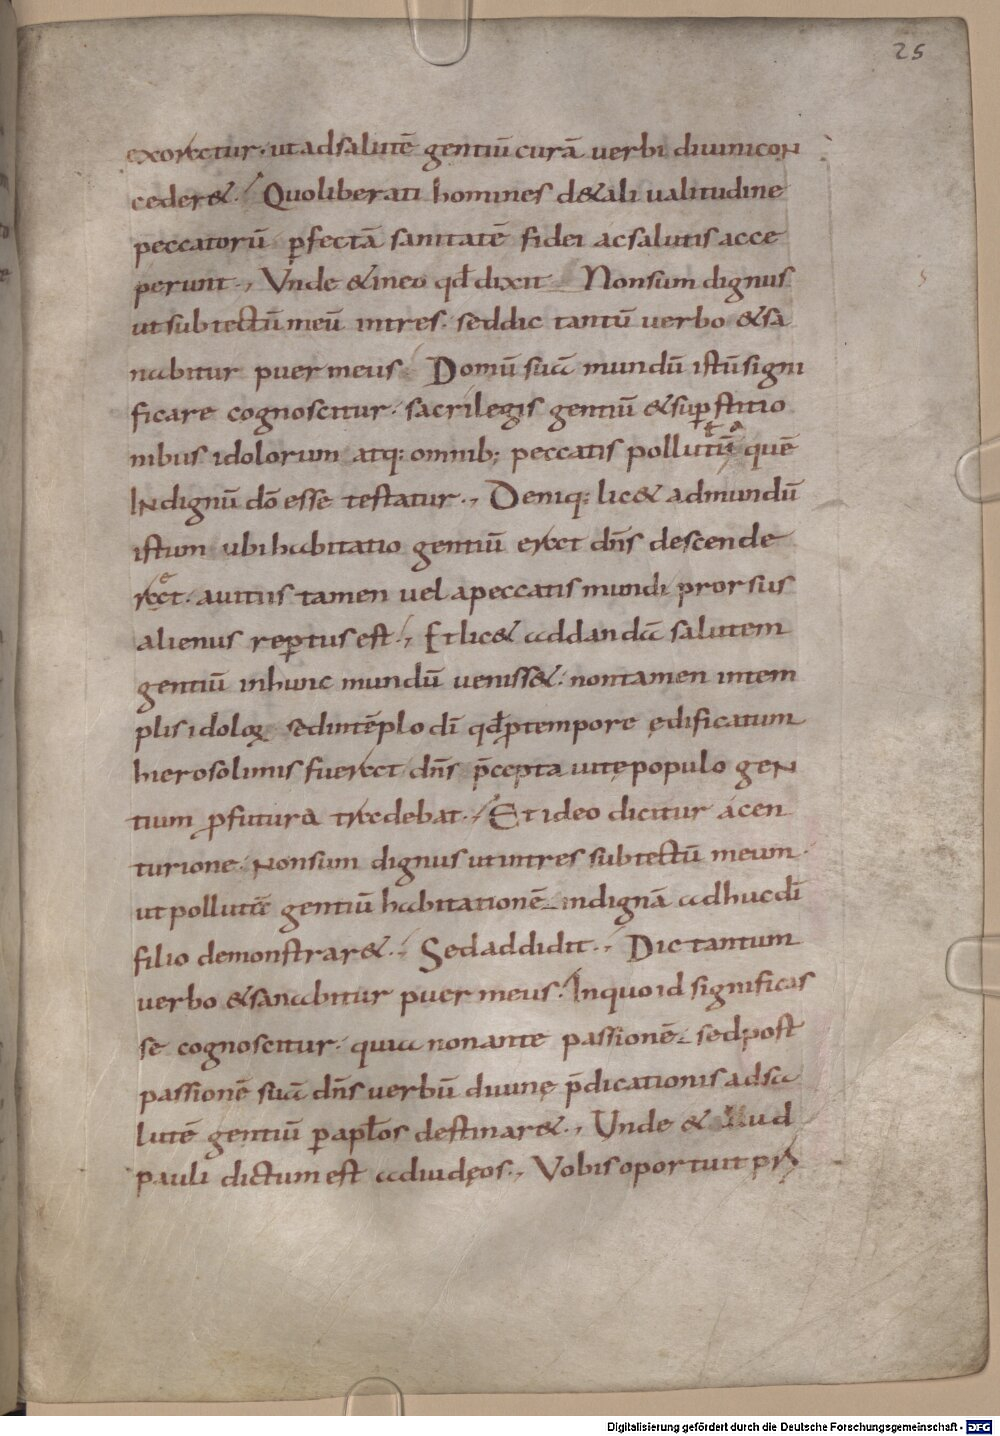 25
exoraretur· ut adsalutē gentiū curā uerbi diuini con
ceder&· Quo liberati homines d&ali ualitudine
peccatorū ꝑfectā sanitatē fidei ac salutis acce
perunt·, Vnde & in eo qđ dixit Non sum dignus
ut sub tectū meū intres· sed dic tantū uerbo & sa
nabitur puer meus Domū suā mundū istū signi
ficare cognoscitur· sacrilegis gentiū & suꝑstitio
nibus idolorum atq: omnib; peccatis pollutū quē
Indignū dō esse testatur·, Deniq: lic& ad mundū
istum ubi habitatio gentiū erat dn̄s descende
rat· a uitiis tamen uel a peccatis mundi prorsus
alienus reꝑtus est·, Et lic& ad dandā salutem
gentiū in hunc mundū uenisset&· non tamen in tem
plis idoloꝝ sed in tēplo dī qđ ꝑ tempore ędificatum
hierosolimis fuerat dn̄s p̄cepta uitę populo gen
tium ꝓfutura tradebat·, Et ideo dicitur a cen
turione· Non sum dignus ut intres sub tectū meum·
ut pollutā gentiū habitationē indignā adhuc dī
filio demonstrar&·, Sed addidit·, Dic tantum
uerbo & sanabitur puer meus· In quo id significas
se cognoscitur· quia non ante passionē sed post
passionē suā dn̄s uerbū diuinę p̄dicationis ad sa
lutē gentiū ꝑ apłos destinar&·, Unde & illud
pauli dictum est ad iudęos·, Vobis oportuit pri
Digitalisierung gefördert durch die Deutsche Forschungsgemeinschaft - DFG